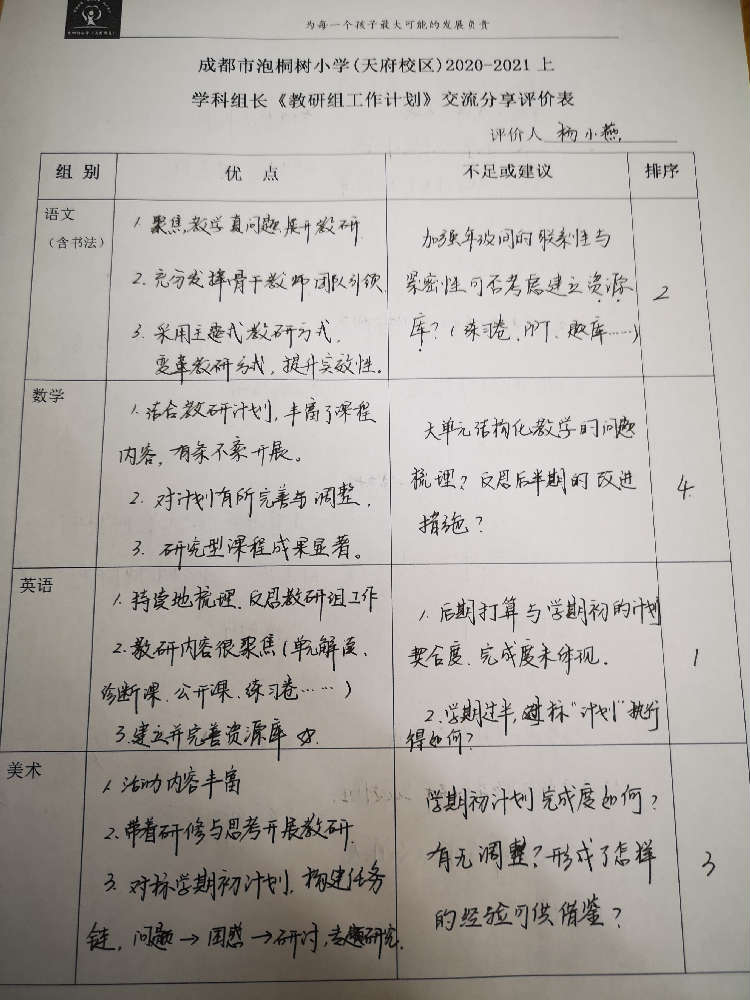 为每一个孩子最大可能的发展负责
成都市泡桐树小学(天府校区)2020-2021上
学科组长《教研组工作计划》交流分享评价表
评价人 杨小燕
组别 优点 不足或建议 排序
语文
(含书法)
1. 聚焦教学真问题展开教研
2. 充分发挥骨干教师团队引领
3. 采用主题式教研方式,
变革教研方式,提升实效性。
加强年级间的联系性与
紧密性可否考虑建立资源
库?(练习卷、PPT、题库……)
2
数学
1. 结合教研计划,丰富了课程
内容,有条不紊开展。
2. 对计划有所完善与调整,
3. 研究型课程成果显著。
大单元结构化教学的问题
梳理?反思后半期的改进
措施?
4
英语
1. 持续地梳理、反思教研组工作
2. 教研内容很聚焦(单元解读、
诊断课、公开课、练习卷……)
3. 建立并完善资源库 ☆.
1. 后期打算与学期初的计划
契合度、完成度未体现.
2. 学期过半,对标“计划”执行
得如何?
1
美术
1. 活动内容丰富
2. 带着研修与思考开展教研.
3. 对标学期初计划,构建任务
链,问题→困惑→研讨,专题研究.
学期初计划完成度如何?
有无调整?形成了怎样
的经验可供借鉴?
3